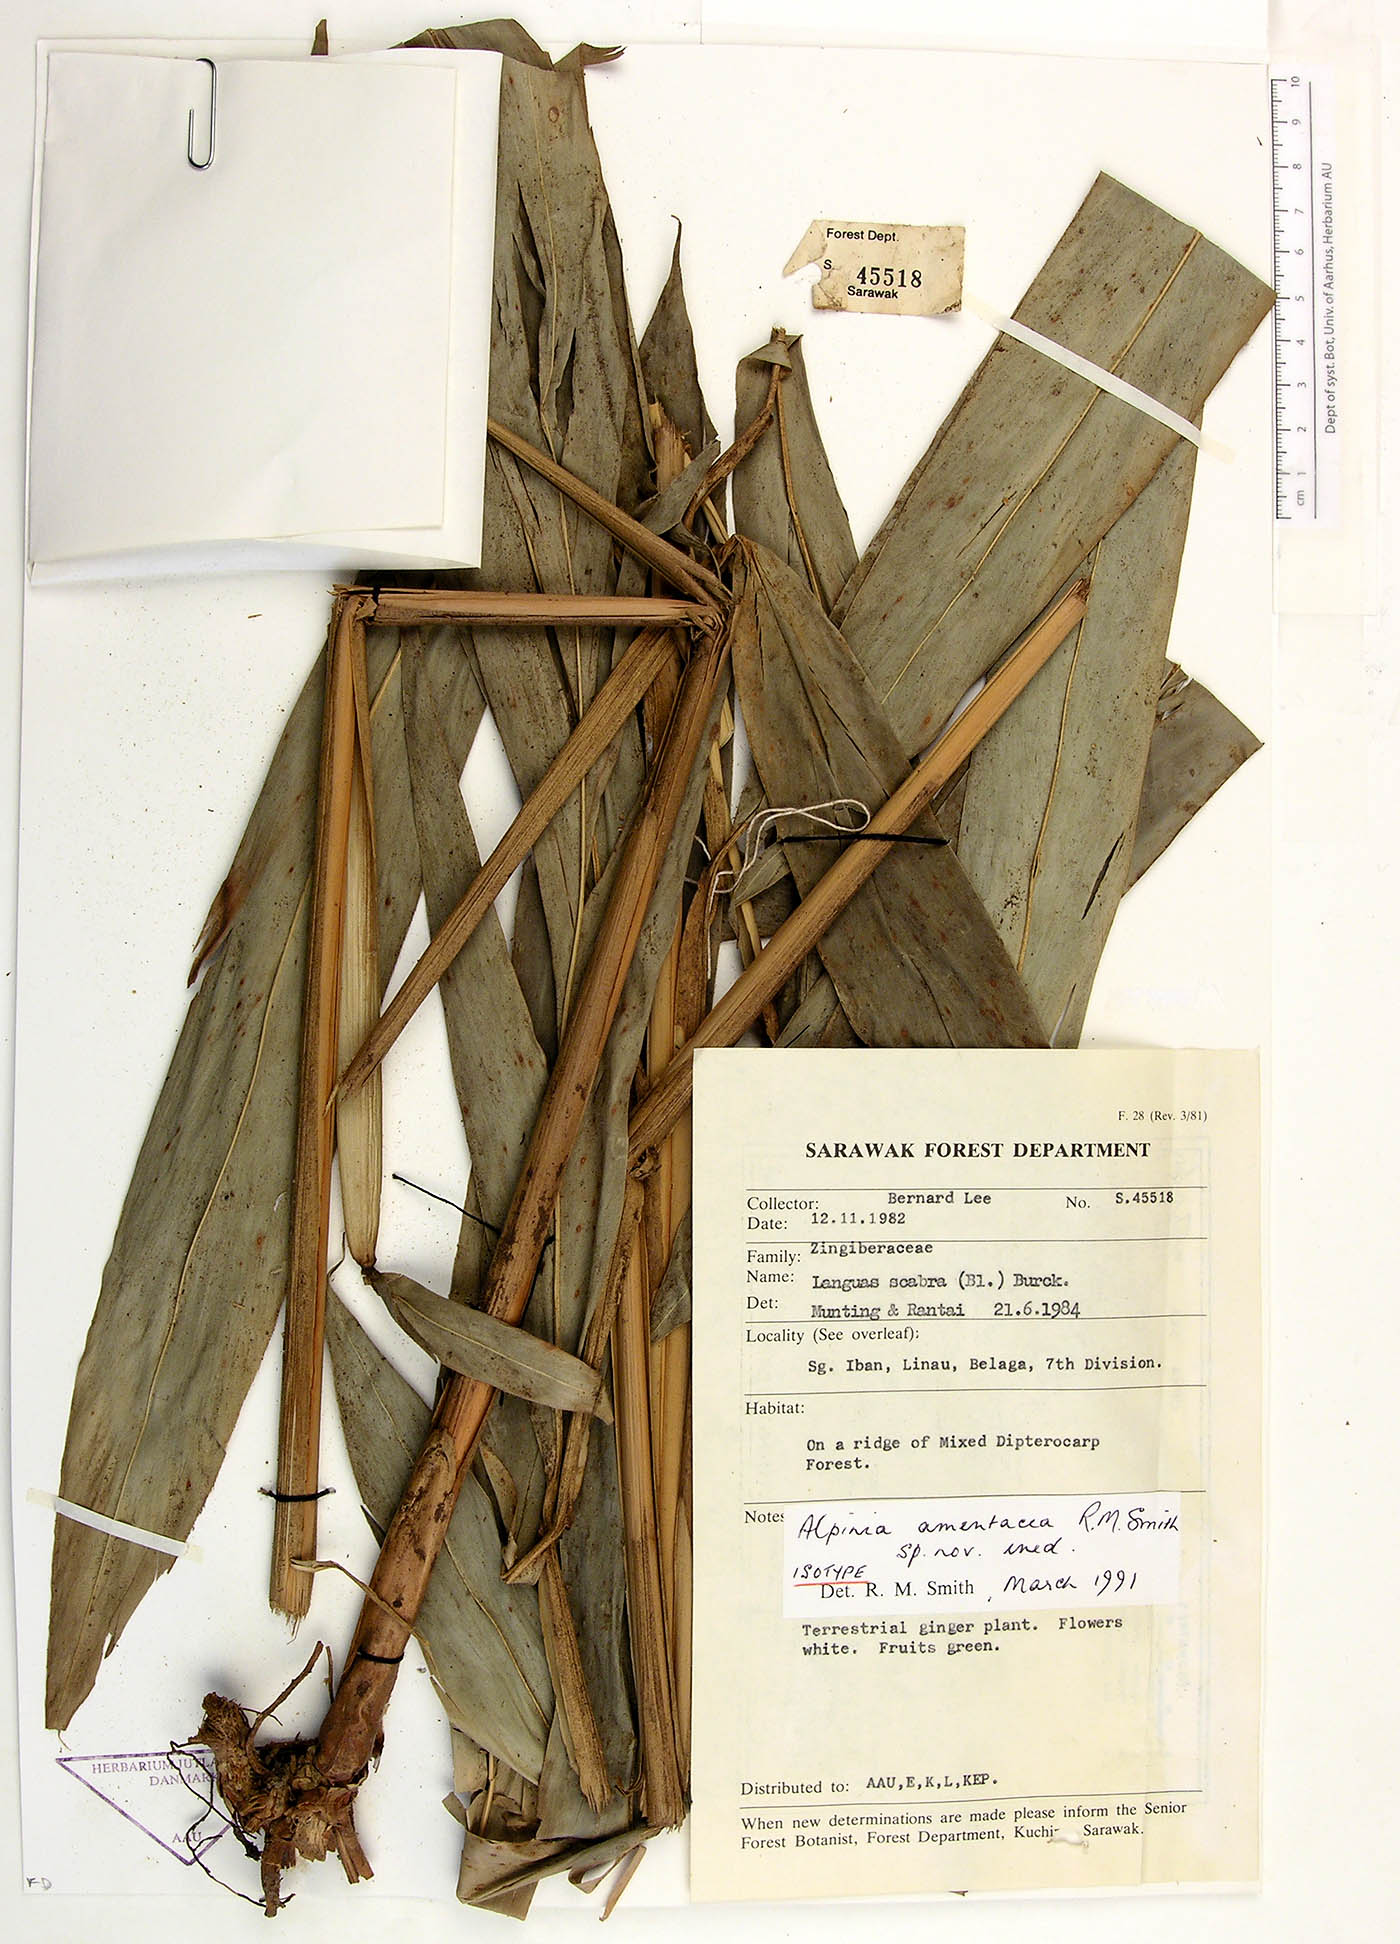 Forest Dept.
S. 45518
Sarawak
10
9
8
7
6
5
4
3
2
1
cm
Dept of syst. Bot, Univ. of Aarhus, Herbarium AU
F. 28 (Rev. 3/81)
SARAWAK FOREST DEPARTMENT
Collector: Bernard Lee No. S.45518
Date: 12.11.1982
Family: Zingiberaceae
Name: Languas scabra (Bl.) Burck.
Det: Munting & Rantai 21.6.1984
Locality (See overleaf):
Sg. Iban, Linau, Belaga, 7th Division.
Habitat:
On a ridge of Mixed Dipterocarp
Forest.
Notes
Alpinia amentacea R.M. Smith
sp. nov. ined.
ISOTYPE
Det. R. M. Smith, March 1991
Terrestrial ginger plant. Flowers
white. Fruits green.
Distributed to: AAU,E,K,L,KEP.
When new determinations are made please inform the Senior
Forest Botanist, Forest Department, Kuchi Sarawak.
HERBARIUM JUTLA
DANMARK
AAU